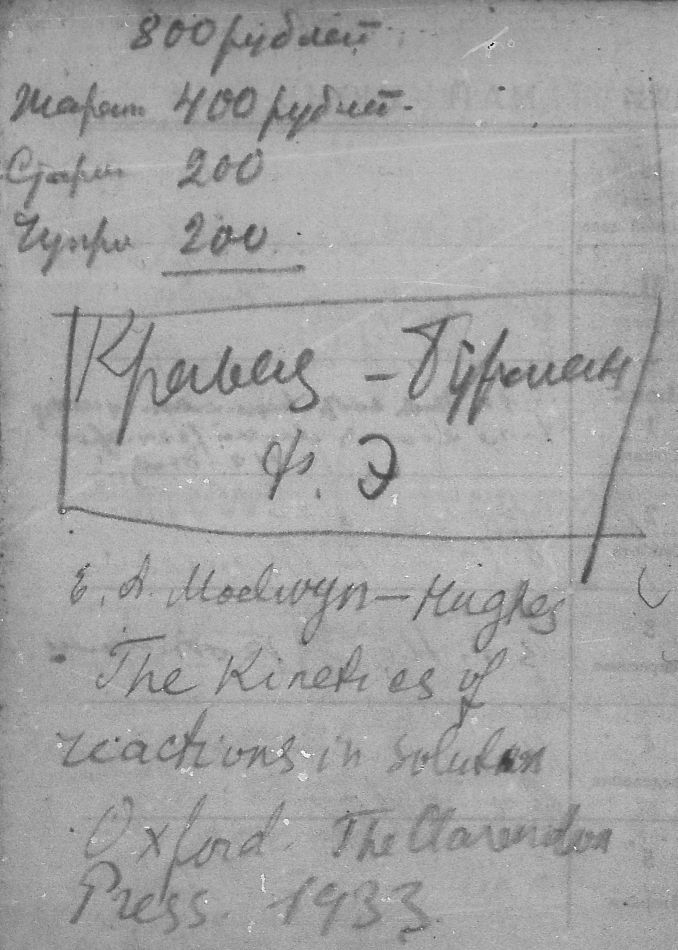 800 рублей
400 рублей.
200
200
Кравец – Гурман
Ф. Э
E. A. Moelwyn–Hughes
The Kinetics of
reactions in solution
Oxford. The Clarendon
Press. 1933